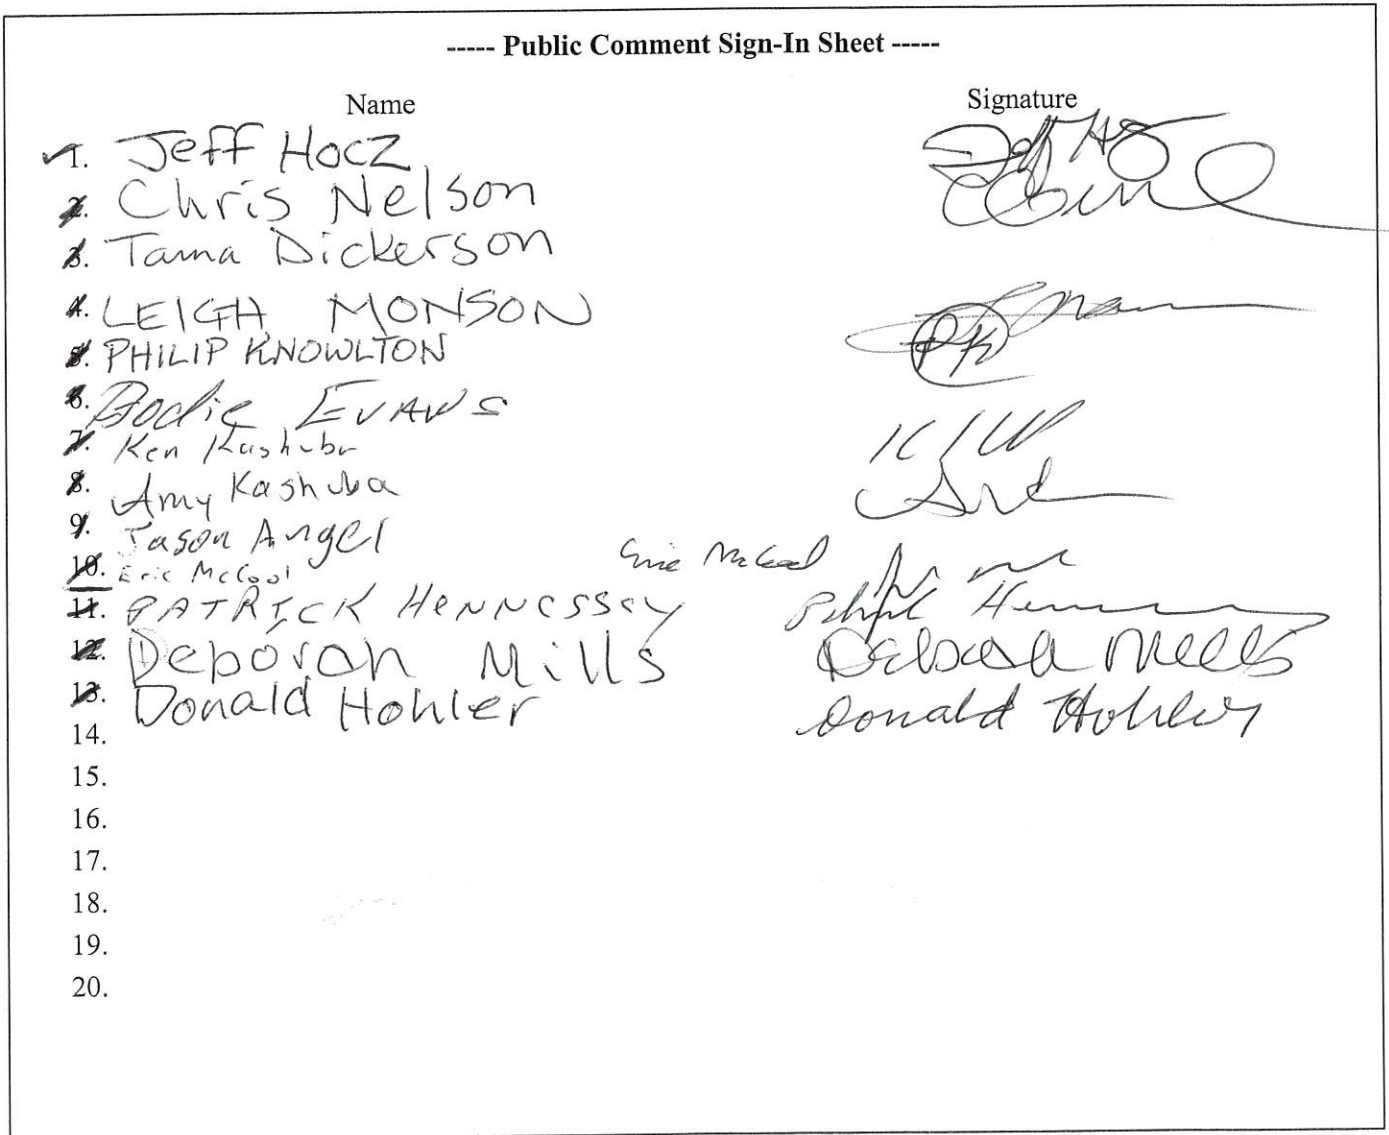 ----- Public Comment Sign-In Sheet -----
Name Signature
1. Jeff Hocz
2. Chris Nelson
3. Tama Dickerson
4. LEIGH MONSON
5. PHILIP KNOWLTON PK
6. Bodie EVANS
7. Ken Kashuba
8. Amy Kashuba
9. Jason Angel
10. Eric McCool Eric McCool
11. PATRICK HENNESSEY Patrick Hennessey
12. Deborah Mills Deborah Mills
13. Donald Hohler Donald Hohler
14.
15.
16.
17.
18.
19.
20.